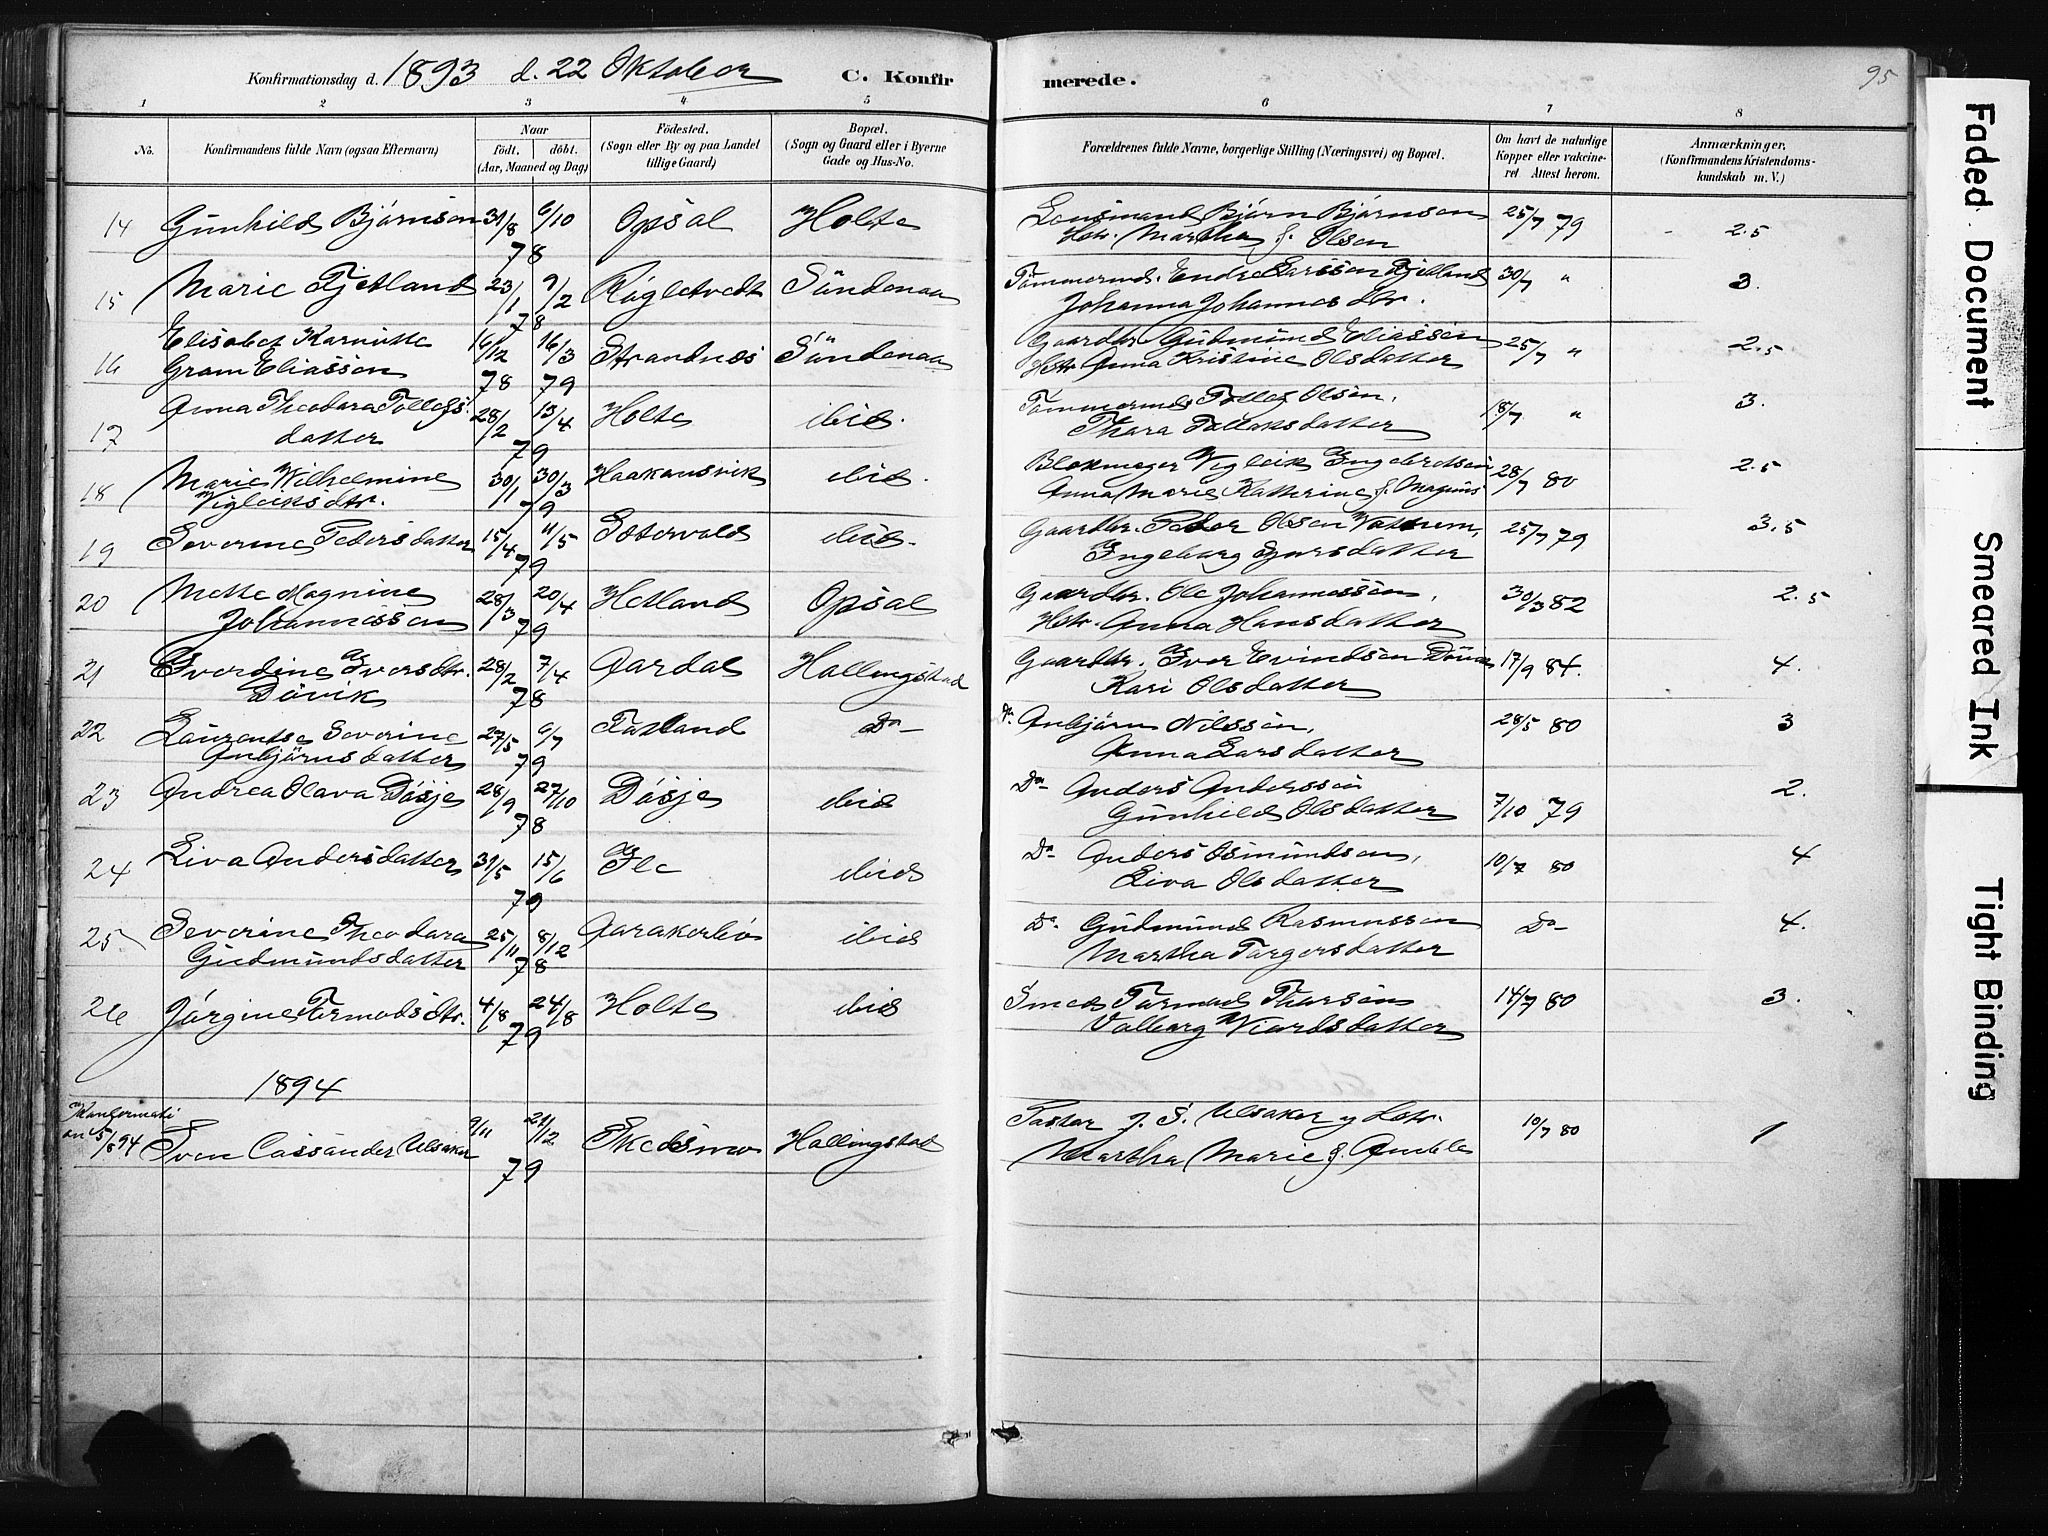 Konfirmationsdag d. 1893 d. 22 Oktober C. Konfirmerede. 95
1 2 3 4 5 6 7 8
No. Konfirmandens fulde Navn (ogsaa Efternavn) Naar födt. döbt. (Aar, Maaned og Dag) Födested. (Sogn eller By og paa Landet tillige Gaard) Bopæl. (Sogn og Gaard eller i Byerne Gade og Hus-No. Forældrenes fulde Navne, borgerlige Stilling (Næringsvei) og Bopæl. Om havt de naturlige Kopper eller vakcineret Attest herom. Anmærkninger. (Konfirmandens Kristendomskundskab m. V.)
14 Gunhild Bjørnsen 31/8 6/10 78 Opsal Holte Lensmand Bjørn Bjørnsen 25/7 79 2.5
Hstr. Martha f. Olsen
15 Marie Fjetland 23/1 9/2 78 Sündenaa Tømmermd. Endre Larssen Fjetland 30/7 " 3.
Johanna Johannesdtr.
16 Elisabet 16/12 16/3 Strandnes Sündenaa Gaardbr. Gudmünd Eliassen 25/7 " 2.5
Gram Eliassen 78 79 Hstr Anna Kristine Olsdatter
17 Anna Theodora Tollefs- 28/2 13/4 79 Holte ibid. Tømmermd. Tollef Olsen, 18/7 " 3.
datter Thora Tollaksdatter
18 Marie Wilhelmine 30/1 30/3 79 Haakansvik ibid. Vigleik Ingebretsen 28/7 80 2.5
Vigleiksdtr. Anna Marie Katherine f. Magnus
19 Severine Pedersdatter 15/4 11/5 79 ibid. Gaardbr. Peder Olsen 25/7 79 3.5
Ingeborg datter
20 Mette Magnine 28/3 20/4 79 Hetland Opsal Gaardbr. Ole Johannessen, 30/3 82 2.5
Johannessen Hstr. Anna Hansdatter
21 Iverdine Iversdtr. 28/2 7/4 78 Aardal Hallingstad Gaardbr. Iver Evindsen 17/9 84. 4.
Døvik Kari Olsdatter
22 Laurentse Severine 27/5 6/7 79 Tatland Do Do Anbjørn Nilssen, 28/5 80 3
Anbjørnsdatter Anna Larsdatter
23 Andrea Olava Døsje 28/9 27/10 78 Døsje ibid Do Anders Anderssen 7/10 79 2.
Gunhild Olsdatter
24 Siva Andersdatter 31/5 15/6 79 Ile ibid Do Anders Osmundsen, 10/7 80 4
Siva Olsdatter
25 Severine Theodora 25/11 8/12 78 ibid Do Gudmünd Rasmussen Do 4.
Gudmündsdatter Martha Torgersdatter
26 Jørgine Tormodsdtr. 4/8 24/8 79 Holte ibid Smed Tormod Thorsen 14/7 80 3.
Valborg datter
1894
Konfermati
on 5/8 94 Sven Cassander Ulsaker 9/11 21/12 79 Skedsmo Hallingstad Pastor J. S. Ulsaker og Hstr. 10/7 80 1
Martha Marie f. Amble
Faded Document
Smeared Ink
Tight Binding